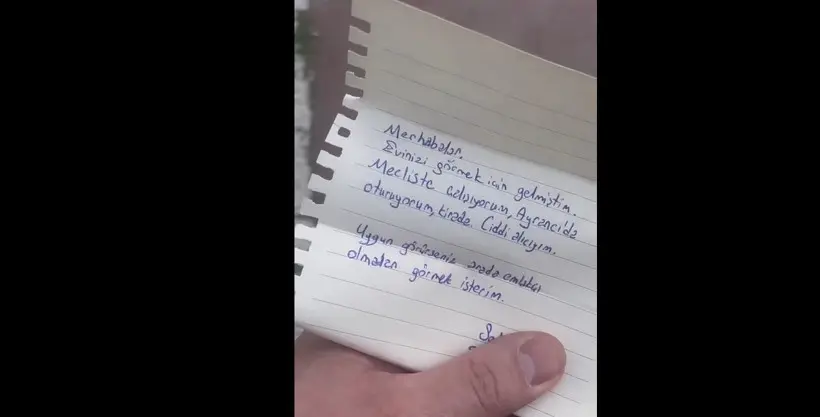 Merhabalar.
Evinizi görmek için gelmiştim.
Mecliste çalışıyorum, Ayrancı'da
oturuyorum, kirada. Ciddi alıcıyım.
Uygun görürseniz arada emlakçı
olmadan görmek isterim.